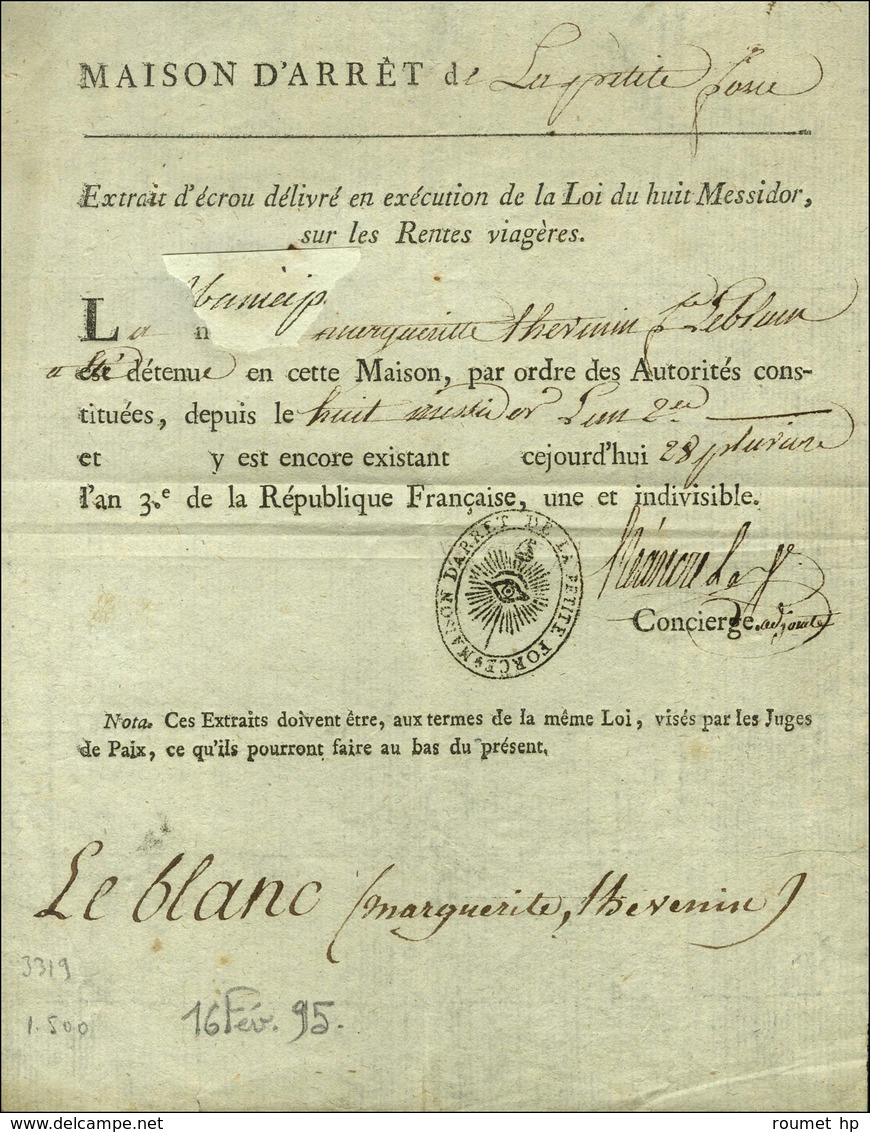 MAISON D'ARRÊT de La petite force
Extrait d'écrou délivré en exécution de la Loi du huit Messidor,
sur les Rentes viagères.
La
margueritte thevenin fe Leblanc
a été détenue en cette Maison, par ordre des Autorités cons-
tituées, depuis le huit messidor L'an 2e
et y est encore existant cejourd'hui 28 pluviose
l'an 3.e de la République Française, une et indivisible.
MAISON D'ARRET DE LA PETITE FORCE
Concierge. adjointe
Nota. Ces Extraits doivent être, aux termes de la même Loi, visés par les Juges
de Paix, ce qu'ils pourront faire au bas du présent.
Le blanc (marguerite, thevenin)
3319
1.500
16 Fév. 95.
roumet hp